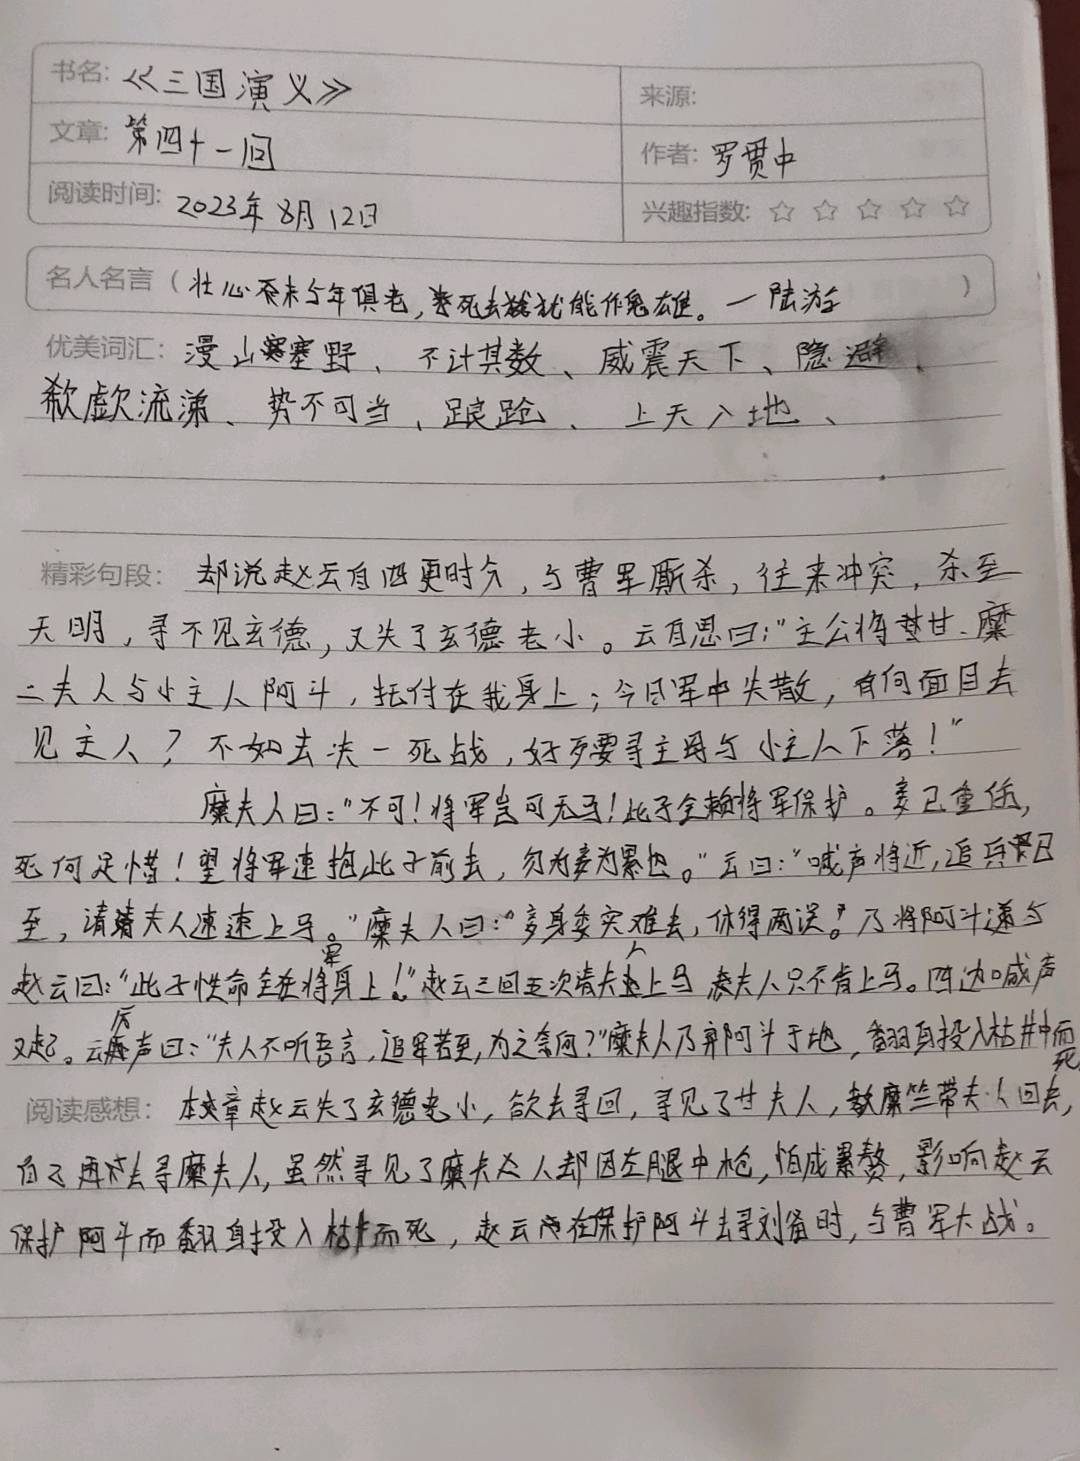 书名:《三国演义》
来源:
文章:第四十一回
作者:罗贯中
阅读时间:2023年8月12日
兴趣指数:☆☆☆☆☆
名人名言(壮心未与年俱老,死去犹能作鬼雄。—陆游)
优美词汇:漫山塞野、不计其数、威震天下、隐避、
欷歔流涕、势不可当、踉跄、上天入地、
精彩句段:却说赵云自四更时分,与曹军厮杀,往来冲突,杀至
天明,寻不见玄德,又失了玄德老小。云自思曰:"主公将甘、糜
二夫人与小主人阿斗,托付在我身上;今日军中失散,有何面目去
见主人?不如去决一死战,好歹要寻主母与小主人下落!"
糜夫人曰:"不可!将军岂可无马!此子全赖将军保护。妾已重伤,
死何足惜!望将军速抱此子前去,勿为妾为累也。"云曰:"喊声将近,追兵已
至,请夫人速速上马。"糜夫人曰:"妾身委实难去,休得两误。"乃将阿斗递与
赵云曰:"此子性命全在将军身上!"赵云三回五次请夫人上马 夫人只不肯上马。四边喊声
又起。云厉声曰:"夫人不听吾言,追军若至,为之奈何?"糜夫人乃弃阿斗于地,翻身投入枯井中而死
阅读感想:本章赵云失了玄德老小,欲去寻回,寻见了甘夫人,糜竺带夫人回去,
自己再去寻糜夫人,虽然寻见了糜夫人却因左腿中枪,怕成累赘,影响赵云
保护阿斗而翻身投入枯井而死,赵云在保护阿斗去寻刘备时,与曹军大战。